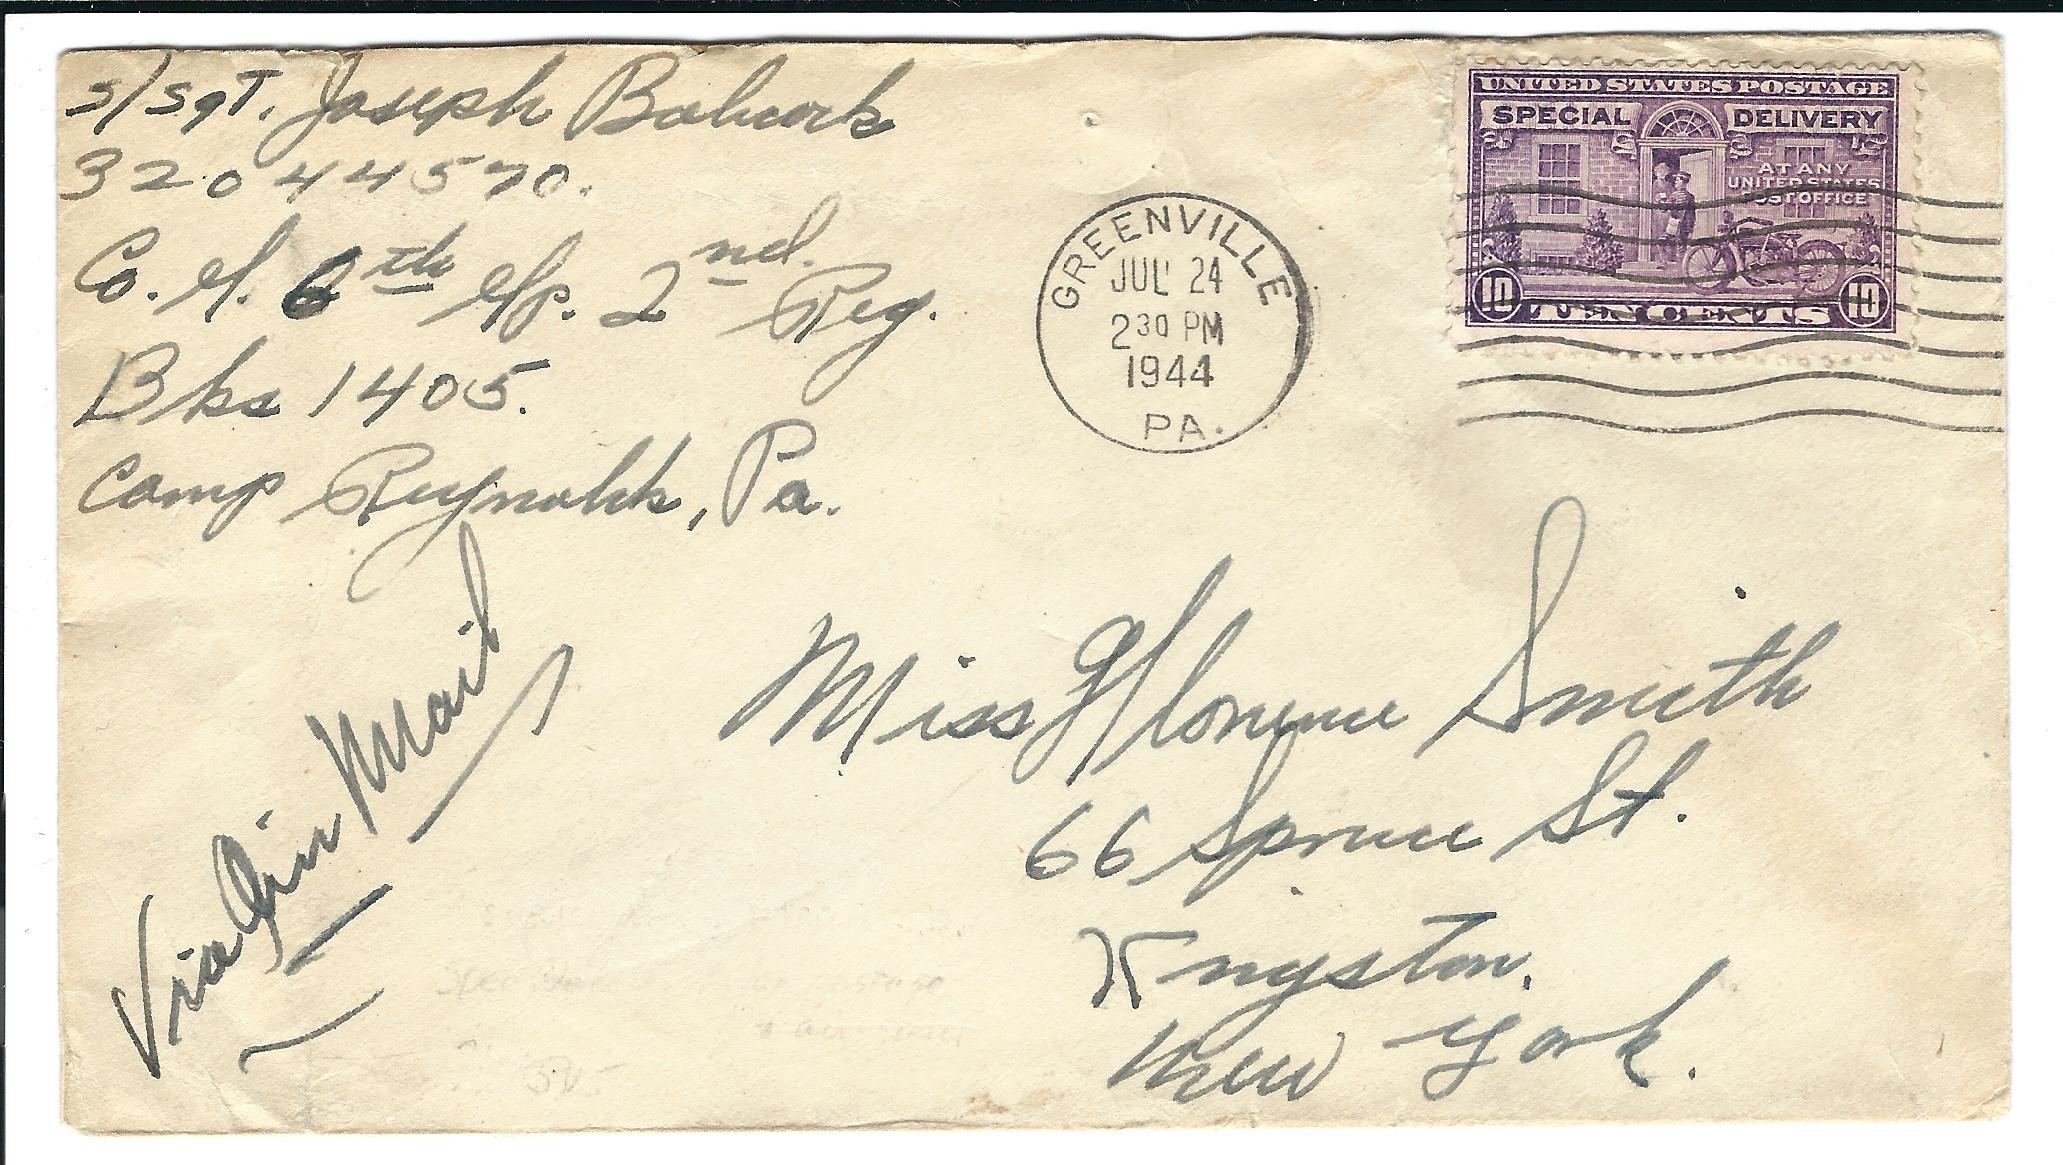 S/SgT. Joseph Babcock
32044570.
Co. A. 6th Gp. 2nd. Reg.
Bks 1405.
Camp Reynolds, Pa.
GREENVILLE
JUL 24
2 30 PM
1944
PA.
UNITED STATES POSTAGE
SPECIAL DELIVERY
AT ANY
UNITED STATES
POST OFFICE
10 TEN CENTS 10
Via Air Mail
Miss Florence Smith
66 Spruce St.
Kingston.
New York.